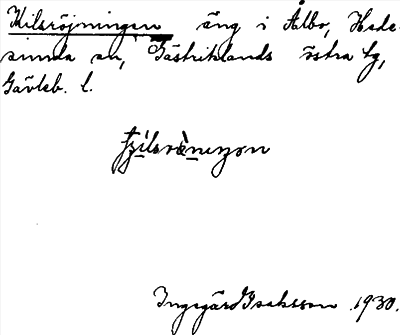 Kilsröjningen äng i Ålbo, Hede-
sunda sn, Gästriklands östra tg,
Gävleb. l.
Ingegärd Isaksson 1930.